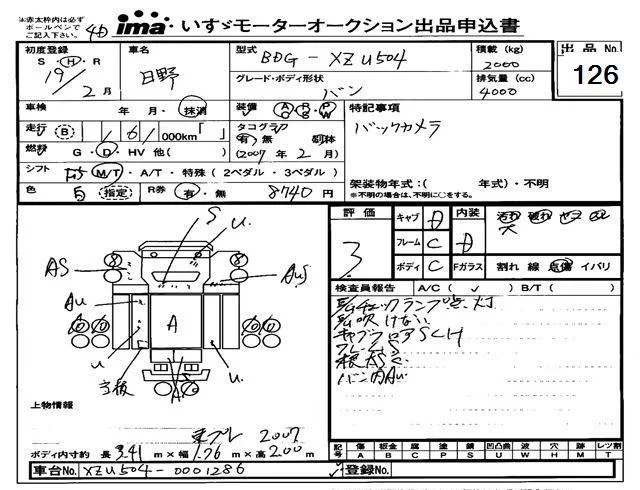 ※赤太枠内は必ず
ボールペンで
ご記入下さい。
4D
ima いすゞモーターオークション出品申込書
初度登録
S・H・R
19/2月
車名
日野
型式
BDG-XZU504
グレード・ボディ形状
バン
積載(kg)
2000
排気量(cc)
4000
出品No.
126
車検 年・月・抹消
装備 A/C P/S R P/W
特記事項
バックカメラ
走行 B 161 000km「 」
タコグラフ
有 無 別体
(2007年2月)
燃料 G・D・HV 他( )
シフト F5 M/T・A/T・特殊(2ペダル・3ペダル)
色 指定 R券 有・無 8740円
架装物年式:( 年式)・不明
※不明の場合は、不明に○をする。
評価
3
キャブ A
フレーム C
ボディ C
内装 A
Fガラス
汚れ 破れ ヤケ
大
割れ 線 点傷 イバリ
検査員報告 A/C( ✓ ) B/T( )
E/Gチェックランプ点灯
E/G吹けない
キャブフロアSCH
フレームS
バン内AU
S
U.
AS
AUS
AU
A
U
U.
A
上物情報
東プレ 2007
ボディ内寸約 長3.41m×幅1.76m×高2.00m
記号 傷 板金 腐 塗 錆 凹凸曲 波 穴 外 レツ割
A B C P S U W H M T
車台No. XZU504-0001286
登録No.